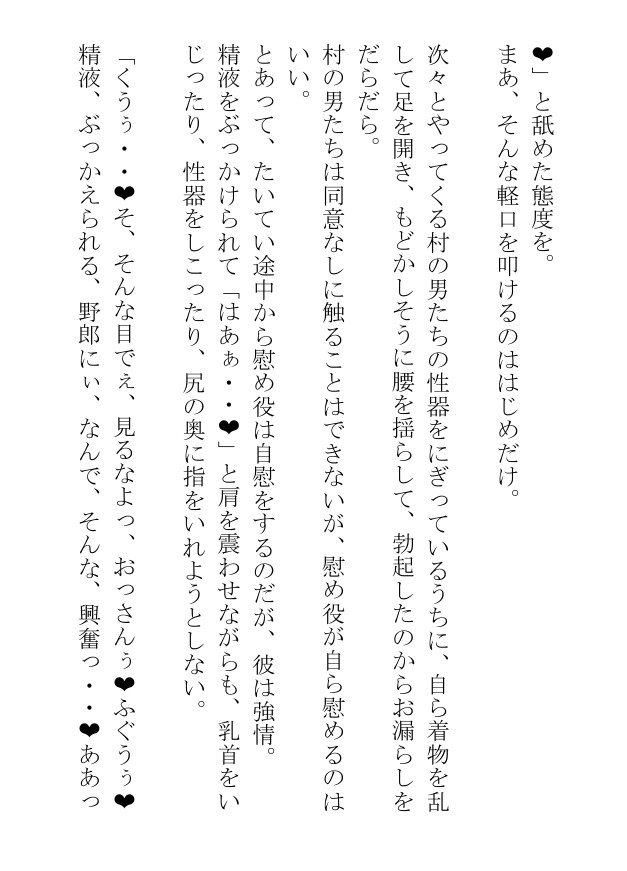 ❤」と舐めた態度を。
まあ、そんな軽口を叩けるのははじめだけ。
次々とやってくる村の男たちの性器をにぎっているうちに、自ら着物を乱
して足を開き、もどかしそうに腰を揺らして、勃起したのからお漏らしを
だらだら。
村の男たちは同意なしに触ることはできないが、慰め役が自ら慰めるのは
いい。
とあって、たいてい途中から慰め役は自慰をするのだが、彼は強情。
精液をぶっかけられて「はあぁ・・❤」と肩を震わせながらも、乳首をい
じったり、性器をしこったり、尻の奥に指をいれようとしない。
「くうぅ・・❤そ、そんな目でぇ、見るなよっ、おっさんぅ❤ふぐうぅ❤
精液、ぶっかえられる、野郎にぃ、なんで、そんな、興奮っ・・❤ああっ